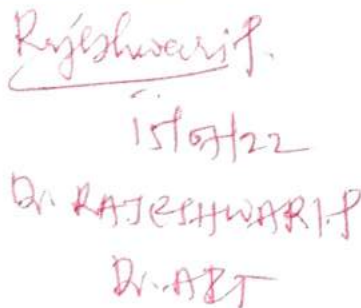 Rajeshwari.P.
15/07/22
Dr. RAJESHWARI.P